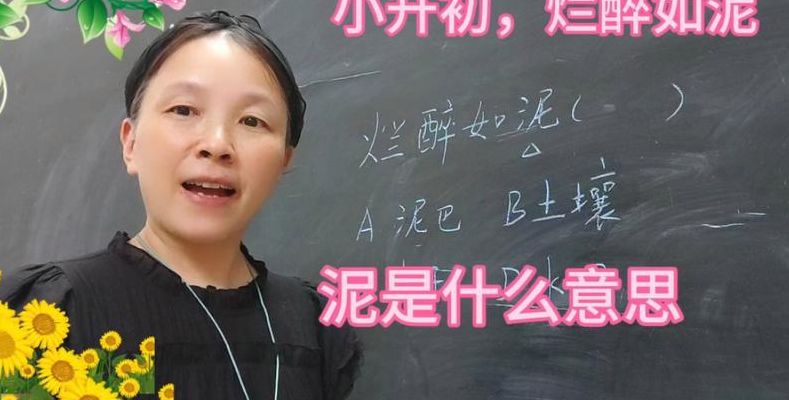 小升初，烂醉如泥
烂醉如泥( )
A 泥巴 B 土壤
泥是什么意思